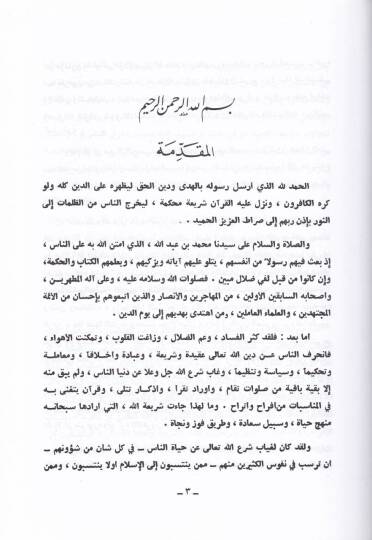 بسم الله الرحمن الرحيم
المقدّمة
الحمد لله الذي ارسل رسوله بالهدى ودين الحق ليظهره على الدين كله ولو
كره الكافرون ، ونزل عليه القرآن شريعة محكمة ، ليخرج الناس من الظلمات إلى
النور بإذن ربهم إلى صراط العزيز الحميد .
والصلاة والسلام على سيدنا محمد بن عبد الله ، الذي امتن الله به على الناس ،
إذ بعث فيهم رسولا من انفسهم ، يتلو عليهم آياته ويزكيهم ، ويعلمهم الكتاب والحكمة،
وإن كانوا من قبل لفي ضلال مبين . فصلوات الله وسلامه عليه ، وعلى آله المطهرين ،
واصحابه السابقين الأولين ، من المهاجرين والأنصار والذين اتبعوهم بإحسان من الأئمة
المجتهدين ، والعلماء العاملين ، ومن اهتدى بهديهم إلى يوم الدين .
اما بعد : فلقد كثر الفساد ، وعم الضلال ، وزاغت القلوب ، وتمكنت الأهواء ،
فانحرف الناس عن دين الله تعالى عقيدة وشريعة ، وعبادة واخلاقا ، ومعاملة
وتحكيما ، وسياسة وتنظيما ، وغاب شرع الله جل وعلا عن دنيا الناس ، ولم يبق منه
إلا بقية باقية من صلوات تقام ، واوراد تقرا ، واذكار تتلى ، وقرآن يتغنى به
في المناسبات من افراح واتراح . وما لهذا جاءت شريعة الله ، التي ارادها سبحانه
منهج حياة ، وسبيل سعادة ، وطريق فوز ونجاة .
ولقد كان لغياب شرع الله تعالى عن حياة الناس ــ في كل شان من شؤونهم ــ
ان ترسب في نفوس الكثيرين منهم ــ ممن ينتسبون إلى الإسلام اولا ينتسبون ، وممن
ــ ٣ ــ